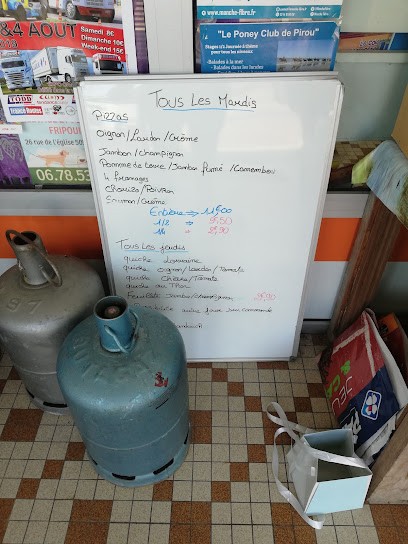 4 AOUT
Samedi 8€
Dimanche 10€
Week-end 15€
FRIPOU
26 rue de l'église 50
06.78.53
www.manche-fibre.fr
"Le Poney Club de Pirou"
- Balades à la mer
TOUS LES Mardis
Pizzas
Oignon/Lardon/Crème
Jambon/Champignon
Pomme de terre/Jambon fumé/Camembert
4 fromages
Chorizo/Poivron
Saumon/Crème
Entière ⇒ 11€00
1/2 ⇒ 5€50
1/4 ⇒ 2€90
Tous les jeudis
quiche Lorraine
quiche oignon/Lardon/Tomate
quiche Chèvre/Tomate
quiche au Thon
Feuilleté Jambon/champignon 2€90
autre faire sur commande